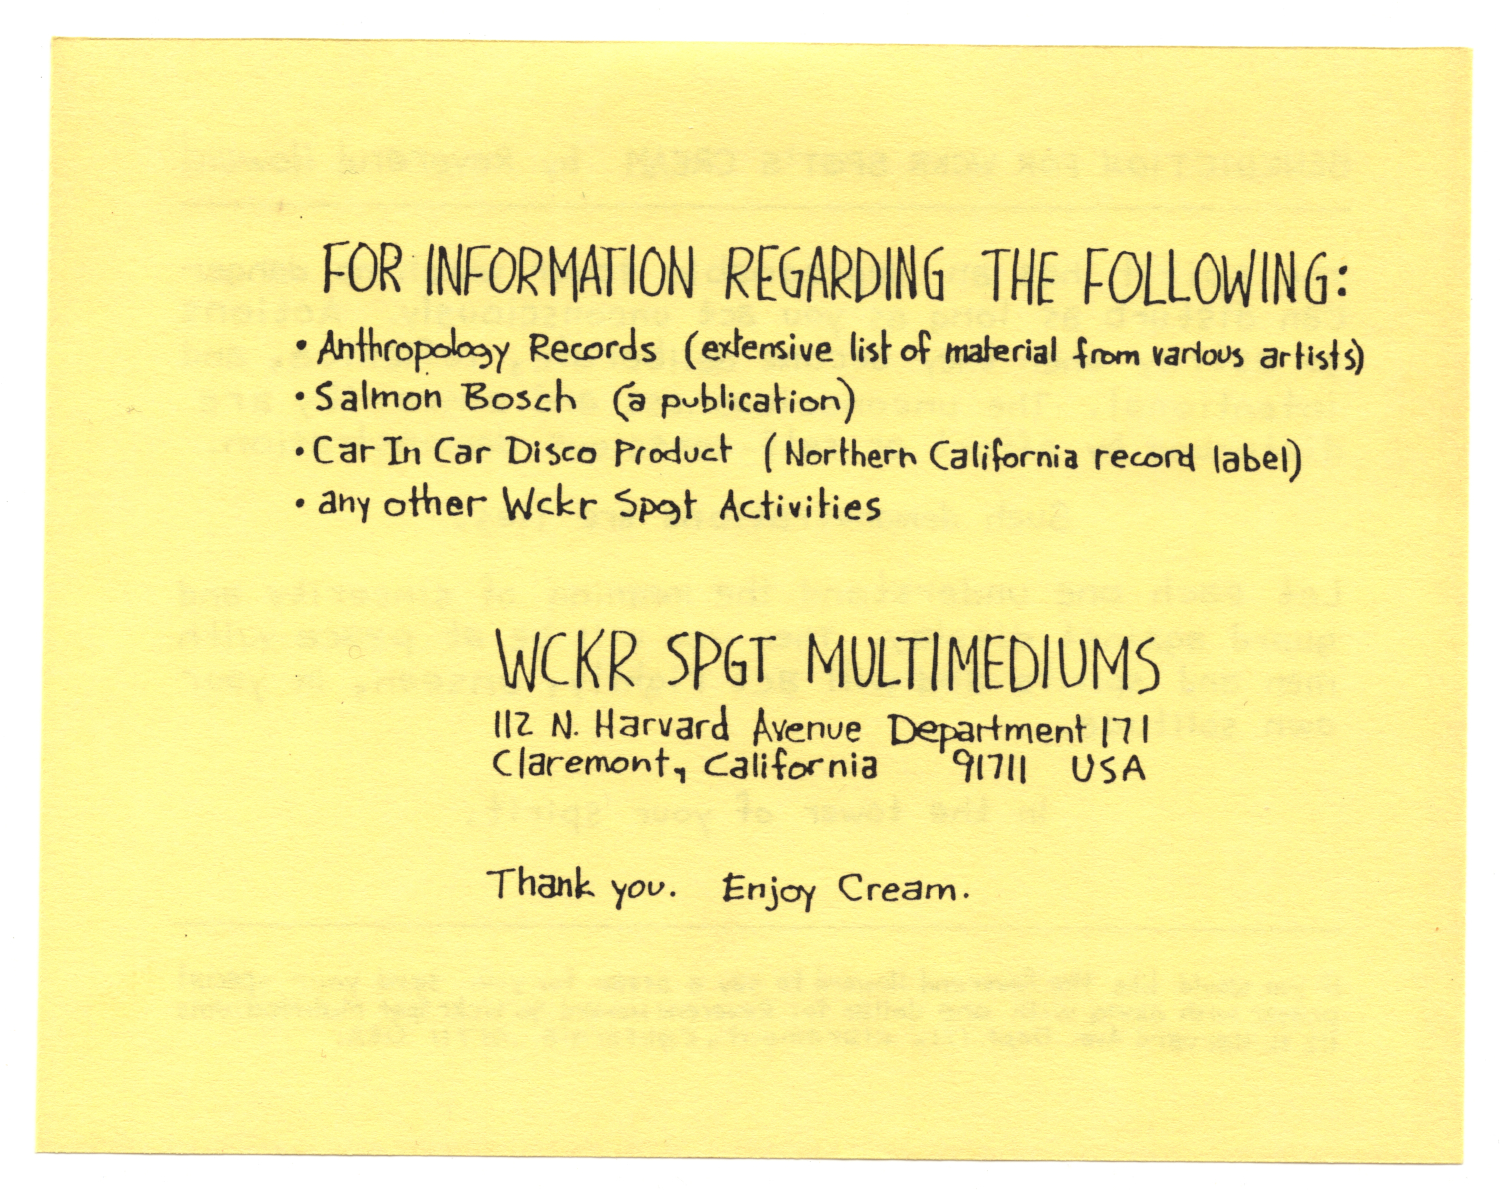 FOR INFORMATION REGARDING THE FOLLOWING:
• Anthropology Records (extensive list of material from various artists)
• Salmon Bosch (a publication)
• Car In Car Disco Product (Northern California record label)
• any other Wckr Spgt Activities
WCKR SPGT MULTIMEDIUMS
112 N. Harvard Avenue Department 171
Claremont, California 91711 USA
Thank you. Enjoy Cream.